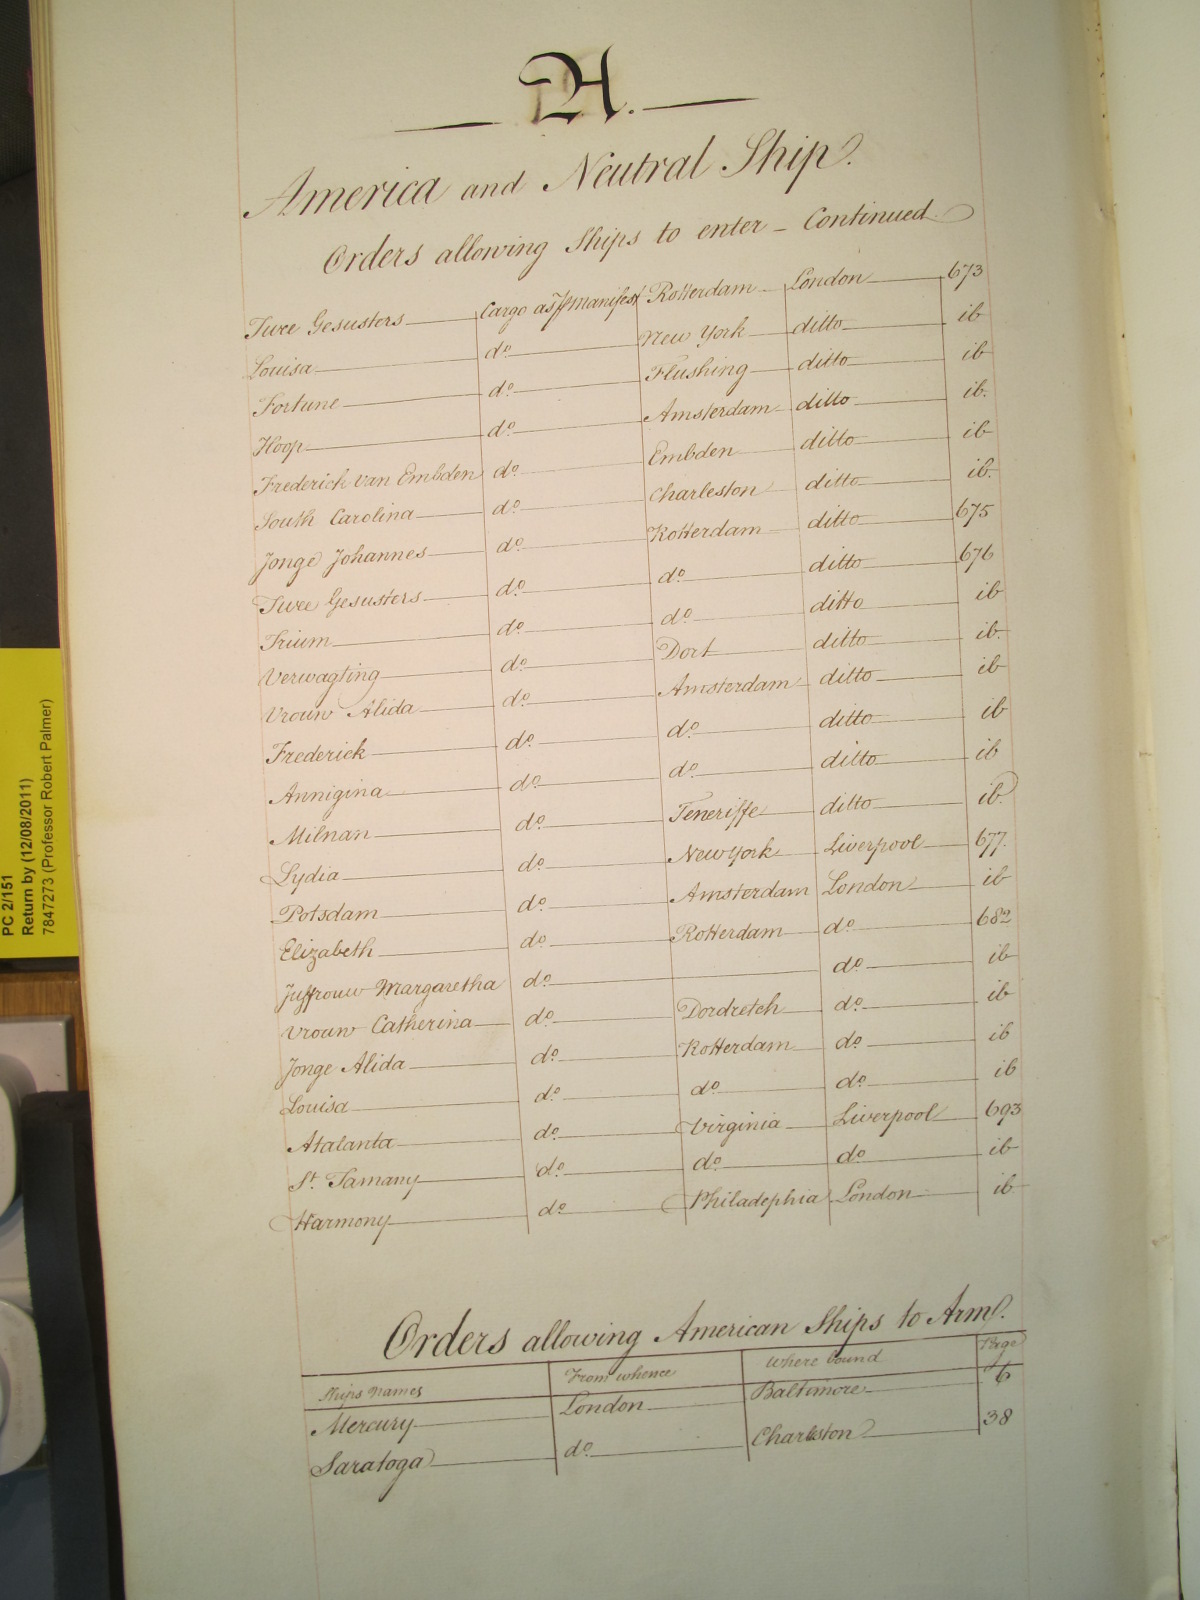 A.
America and Neutral Ships.
Orders allowing Ships to enter – Continued
Twee Gesusters Cargo as ⅌ Manifest Rotterdam London 673
Louisa do. New York ditto ib
Fortune do. Flushing ditto ib
Hoop do. Amsterdam ditto ib.
Frederick van Embden do. Embden ditto ib
South Carolina do. Charleston ditto ib.
Jonge Johannes do. Rotterdam ditto 675
Twee Gesusters do. do. ditto 676
Trium do. do. ditto ib
Verwagting do. Dort ditto ib.
Vrouw Alida do. Amsterdam ditto ib
Frederick do. do. ditto ib
Annigina do. do. ditto ib
Milnan do. Teneriffe ditto ib.
Lydia do. New York Liverpool 677.
Potsdam do. Amsterdam London ib
Elizabeth do. Rotterdam do. 682
Juffrouw Margaretha do. do. ib
Vrouw Catherina do. Dordretch do. ib
Jonge Alida do. Rotterdam do. ib
Louisa do. do. do. ib
Atalanta do. Virginia Liverpool 693
St. Tamany do. do. do. ib
Harmony do. Philadephia London ib
Orders allowing American Ships to Arm.
Ships Names From whence Where bound Page
Mercury London Baltimore 6
Saratoga do. Charleston 38
PC 2/151
Return by (12/08/2011)
7847273 (Professor Robert Palmer)